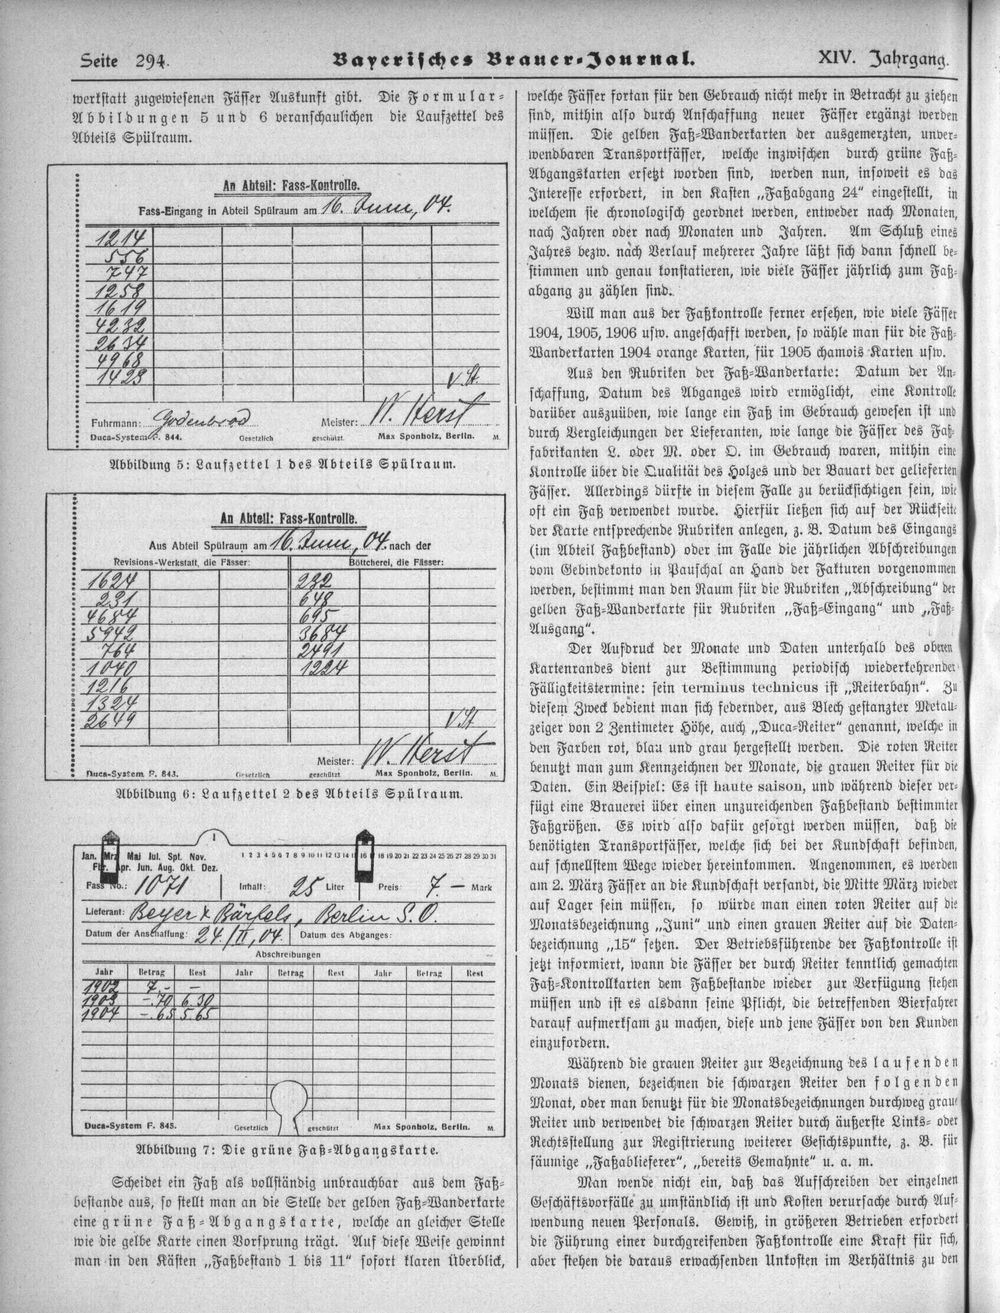 Seite 294.
Bayerisches Brauer-Journal.
XIV. Jahrgang.
werkstatt zugewiesenen Fässer Auskunft gibt. Die Formular-
Abbildungen 5 und 6 veranschaulichen die Laufzettel des
Abteils Spülraum.
An Abteil: Fass-Kontrolle.
Fass-Eingang in Abteil Spülraum am 16. Juni, 04.
1214
556
747
1258
1619
4232
2634
4968
1423
v St.
Fuhrmann: Godenbrod Meister: W. Herst
Duca-System F. 844. Gesetzlich geschützt. Max Sponholz, Berlin. M.
Abbildung 5: Laufzettel 1 des Abteils Spülraum.
An Abteil: Fass-Kontrolle.
Aus Abteil Spülraum am 16. Juni, 04. nach der
Revisions-Werkstatt, die Fässer: Böttcherei, die Fässer:
1624 232
231 648
4684 695
5942 3684
764 2491
1040 1224
1216
1324
2649 v St
Meister: W. Herst
Duca-System F. 843. Gesetzlich geschützt Max Sponholz, Berlin. M.
Abbildung 6: Laufzettel 2 des Abteils Spülraum.
1
Jan. Mrz Mai Jul. Spt. Nov. 1 2 3 4 5 6 7 8 9 10 11 12 13 14 15 16 17 18 19 20 21 22 23 24 25 26 27 28 29 30 31
Fbr. Apr. Jun. Aug. Okt. Dez.
Fass No.: 1071 Inhalt: 25 Liter Preis 7.— Mark
Lieferant: Beyer & Bärfels, Berlin S. O.
Datum der Anschaffung: 24./II, 04. Datum des Abganges:
Abschreibungen
Jahr Betrag Rest Jahr Betrag Rest Jahr Betrag Rest Jahr Betrag Rest
1902 7.- —
1903 -.70 6.30
1904 -.65 5.65
Duca-System F. 845. Gesetzlich geschützt Max Sponholz, Berlin. M.
Abbildung 7: Die grüne Faß-Abgangskarte.
Scheidet ein Faß als vollständig unbrauchbar aus dem Faß-
bestande aus, so stellt man an die Stelle der gelben Faß-Wanderkarte
eine grüne Faß-Abgangskarte, welche an gleicher Stelle
wie die gelbe Karte einen Vorsprung trägt. Auf diese Weise gewinnt
man in den Kästen „Faßbestand 1 bis 11“ sofort klaren Überblick,
welche Fässer fortan für den Gebrauch nicht mehr in Betracht zu ziehen
sind, mithin also durch Anschaffung neuer Fässer ergänzt werden
müssen. Die gelben Faß-Wanderkarten der ausgemerzten, unver-
wendbaren Transportfässer, welche inzwischen durch grüne Faß-
Abgangskarten ersetzt worden sind, werden nun, insoweit es das
Interesse erfordert, in den Kasten „Faßabgang 24“ eingestellt, in
welchem sie chronologisch geordnet werden, entweder nach Monaten,
nach Jahren oder nach Monaten und Jahren. Am Schluß eines
Jahres bezw. nach Verlauf mehrerer Jahre läßt sich dann schnell be-
stimmen und genau konstatieren, wie viele Fässer jährlich zum Faß-
abgang zu zählen sind.
Will man aus der Faßkontrolle ferner ersehen, wie viele Fässer
1904, 1905, 1906 usw. angeschafft werden, so wähle man für die Faß-
Wanderkarten 1904 orange Karten, für 1905 chamois Karten usw.
Aus den Rubriken der Faß-Wanderkarte: Datum der An-
schaffung, Datum des Abganges wird ermöglicht, eine Kontrolle
darüber auszuüben, wie lange ein Faß im Gebrauch gewesen ist und
durch Vergleichungen der Lieferanten, wie lange die Fässer des Faß-
fabrikanten L. oder M. oder O. im Gebrauch waren, mithin eine
Kontrolle über die Qualität des Holzes und der Bauart der gelieferten
Fässer. Allerdings dürfte in diesem Falle zu berücksichtigen sein, wie
oft ein Faß verwendet wurde. Hierfür ließen sich auf der Rückseite
der Karte entsprechende Rubriken anlegen, z. B. Datum des Eingangs
(im Abteil Faßbestand) oder im Falle die jährlichen Abschreibungen
vom Gebindekonto in Pauschal an Hand der Fakturen vorgenommen
werden, bestimmt man den Raum für die Rubriken „Abschreibung“ der
gelben Faß-Wanderkarte für Rubriken „Faß-Eingang“ und „Faß-
Ausgang“.
Der Aufdruck der Monate und Daten unterhalb des oberen
Kartenrandes dient zur Bestimmung periodisch wiederkehrender
Fälligkeitstermine: sein terminus technicus ist „Reiterbahn“. Zu
diesem Zweck bedient man sich federnder, aus Blech gestanzter Metall-
zeiger von 2 Zentimeter Höhe, auch „Duca-Reiter“ genannt, welche in
den Farben rot, blau und grau hergestellt werden. Die roten Reiter
benutzt man zum Kennzeichnen der Monate, die grauen Reiter für die
Daten. Ein Beispiel: Es ist haute saison, und während dieser ver-
fügt eine Brauerei über einen unzureichenden Faßbestand bestimmter
Faßgrößen. Es wird also dafür gesorgt werden müssen, daß die
benötigten Transportfässer, welche sich bei der Kundschaft befinden,
auf schnellstem Wege wieder hereinkommen. Angenommen, es werden
am 2. März Fässer an die Kundschaft versandt, die Mitte März wieder
auf Lager sein müssen, so würde man einen roten Reiter auf die
Monatsbezeichnung „Juni“ und einen grauen Reiter auf die Daten-
bezeichnung „15“ setzen. Der Betriebsführende der Faßkontrolle ist
jetzt informiert, wann die Fässer der durch Reiter kenntlich gemachten
Faß-Kontrollkarten dem Faßbestande wieder zur Verfügung stehen
müssen und ist es alsdann seine Pflicht, die betreffenden Bierfahrer
darauf aufmerksam zu machen, diese und jene Fässer von den Kunden
einzufordern.
Während die grauen Reiter zur Bezeichnung des laufenden
Monats dienen, bezeichnen die schwarzen Reiter den folgenden
Monat, oder man benutzt für die Monatsbezeichnungen durchweg graue
Reiter und verwendet die schwarzen Reiter durch äußerste Links- oder
Rechtsstellung zur Registrierung weiterer Gesichtspunkte, z. B. für
säumige „Faßablieferer“, „bereits Gemahnte“ u. a. m.
Man wende nicht ein, daß das Aufschreiben der einzelnen
Geschäftsvorfälle zu umständlich ist und Kosten verursache durch Auf-
wendung neuen Personals. Gewiß, in größeren Betrieben erfordert
die Führung einer durchgreifenden Faßkontrolle eine Kraft für sich,
aber stehen die daraus erwachsenden Unkosten im Verhältnis zu den